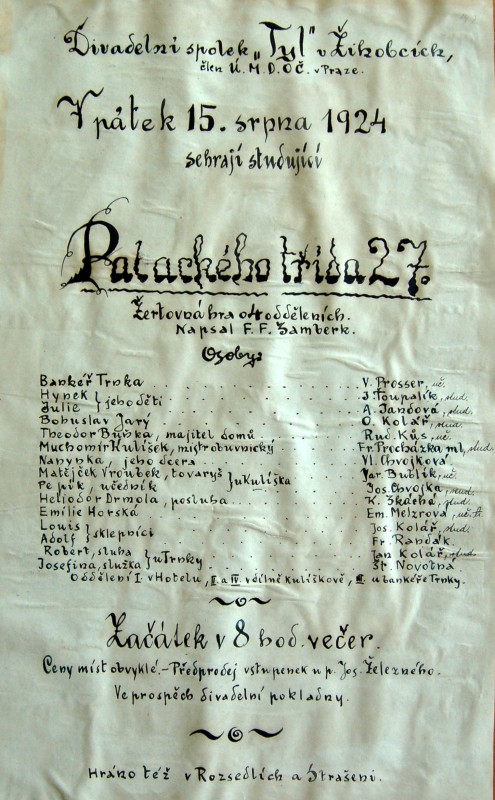 Divadelní spolek „Tyl" v Žikobcích,
člen Ú. M. D. O. Č. v Praze.
V pátek 15. srpna 1924
sehrají studující
Palackého třída 27.
Žertovná hra o 4 odděleních.
Napsal F. F. Šamberk.
Osoby:
Bankéř Trnka V. Prosser, uč.
Hynek } jeho děti J. Toupalík, stud.
Julie A. Jandová, stud.
Bohuslav Jarý O. Kolář, stud.
Theodor Bubka, majitel domů Rud. Kůs, uč.
Muchomír Kulíšek, mistr obuvnický Fr. Procházka ml., stud.
Nanynka, jeho dcera Vl. Chvojková
Matějček Vrouték, tovaryš } u Kulíška Jar. Bublík, uč.
Pepík, učedník Jos. Chvojka, stud.
Heliodor Drmola, posluha K. Skácha, stud.
Emilie Horská Em. Melzrová, uč.
Louis } sklepníci Jos. Kolář, stud.
Adolf Fr. Randák.
Robert, sluha } u Trnky Jan Kolář, stud.
Josefina, služka Št. Novotná
Oddělení I. v Hotelu, II. a IV. v dílně Kulíškově, III. u bankéře Trnky.
Začátek v 8 hod. večer.
Ceny míst obvyklé. – Předprodej vstupenek u p. Jos. Železného.
Ve prospěch divadelní pokladny.
Hráno též v Rozsedlích a Strašeni.